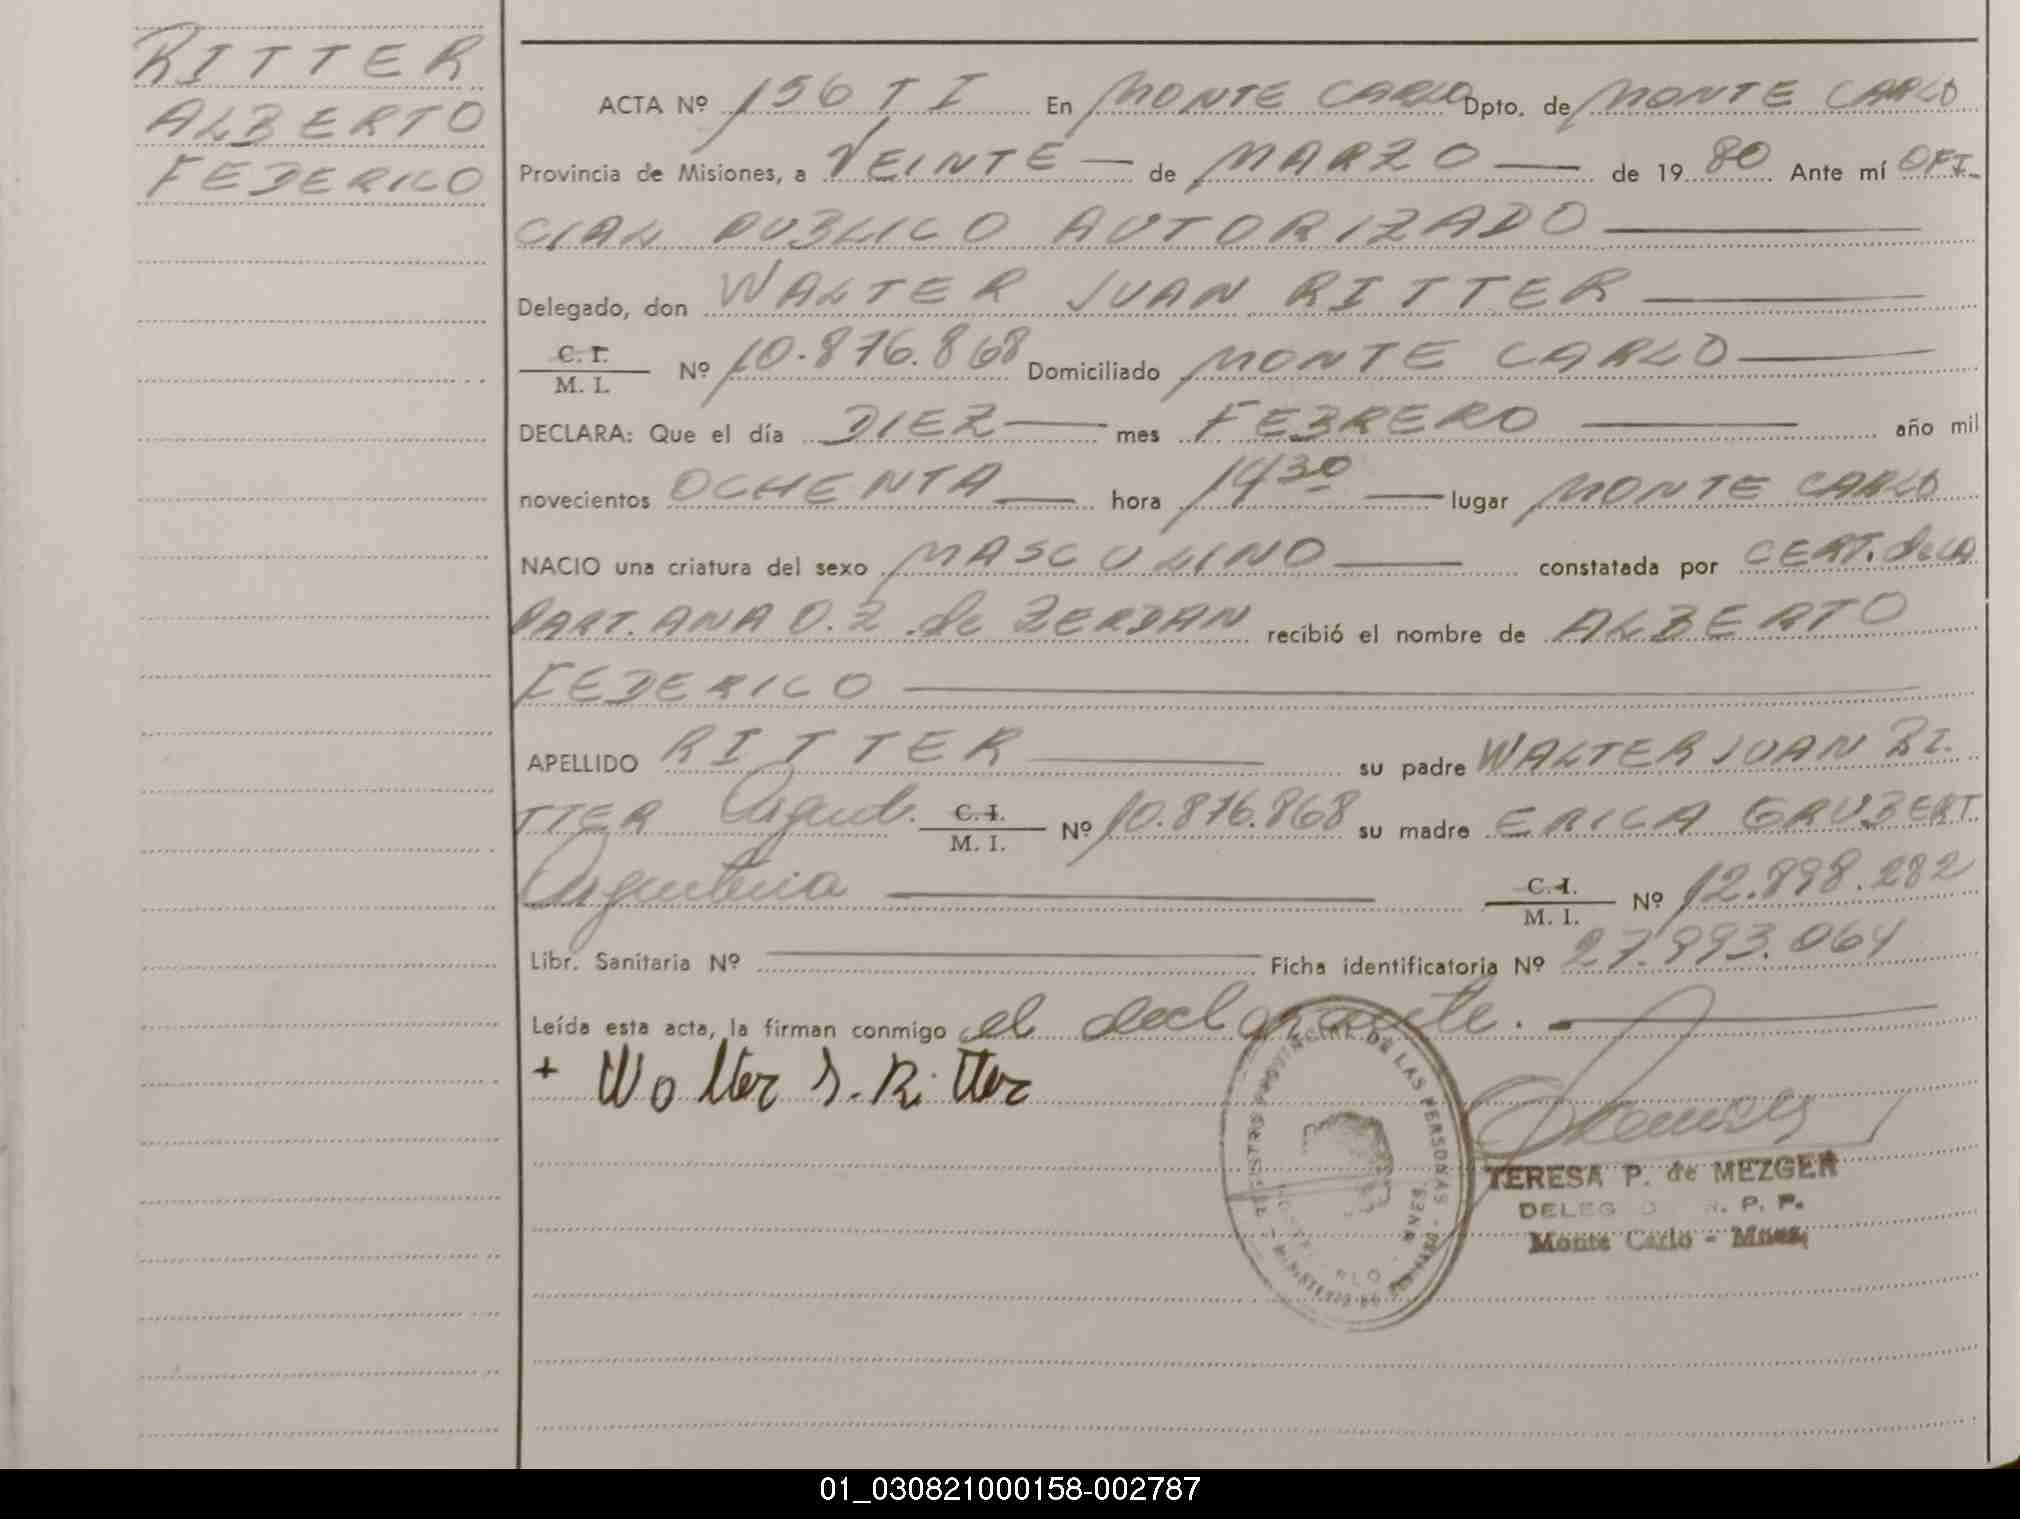 RITTER
ALBERTO
FEDERICO
ACTA Nº 156 T I En MONTE CARLO Dpto. de MONTE CARLO
Provincia de Misiones, a VEINTE — de MARZO — de 19 80 Ante mí OFI-
CIAL PUBLICO AUTORIZADO —
Delegado, don WALTER JUAN RITTER —
C. I. / M. I. Nº 10.876.868 Domiciliado MONTE CARLO —
DECLARA: Que el día DIEZ — mes FEBRERO — año mil
novecientos OCHENTA — hora 1430 — lugar MONTE CARLO
NACIO una criatura del sexo MASCULINO — constatada por CERT. de LA
PART. ANA O. Z. de ZERDAN recibió el nombre de ALBERTO
FEDERICO —
APELLIDO RITTER — su padre WALTER JUAN RI-
TTER Argent. C. I. / M. I. Nº 10.876.868 su madre ERICA GRUBERT.
Argentina — C. I. / M. I. Nº 12.898.282
Libr. Sanitaria Nº — Ficha identificatoria Nº 27.993.064
Leída esta acta, la firman conmigo el declarante. —
+ Walter J. Ritter
REGISTRO PROVINCIAL DE LAS PERSONAS
TERESA P. de MEZGER
DELEG R. P. P.
Monte Carlo - Mnes.
01_030821000158-002787